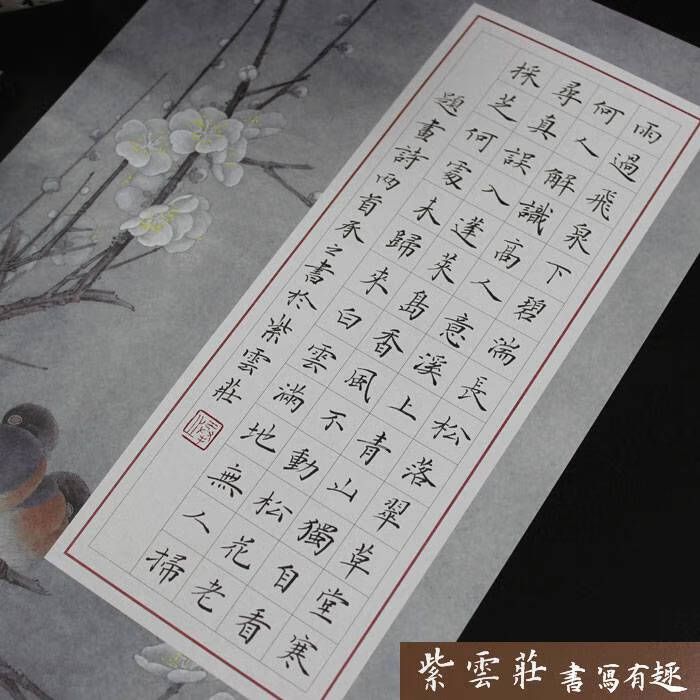 雨過飛泉下碧湍長松落翠草堂寒
何人解識高人意溪上青山獨自看
尋真誤入蓬萊島香風不動松花老
採芝何處未歸來白雲滿地無人掃
題畫詩兩首承之書於紫雲莊
紫雲莊 書寫有趣